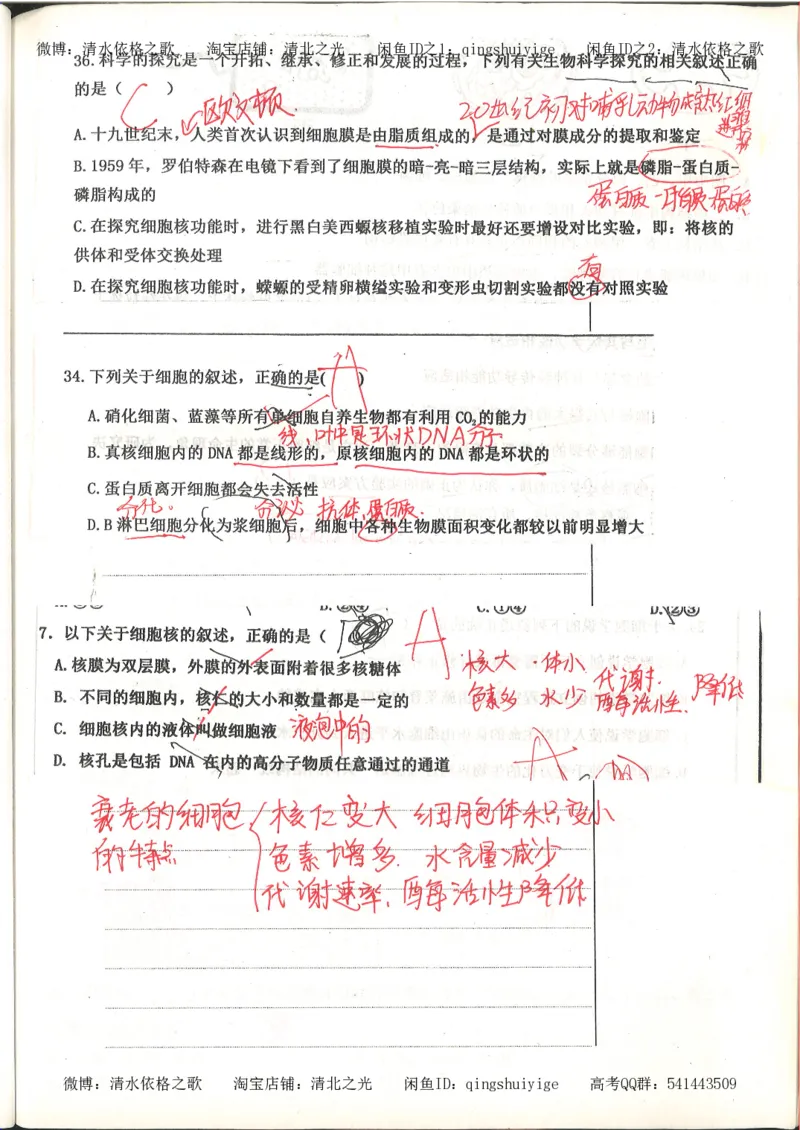 微博：清水依格之歌 淘宝店铺：清北之光 闲鱼ID之1：qingshuiyige 闲鱼ID之2：清水依格之歌
36.科学的探究是一个开拓、继承、修正和发展的过程，下列有关生物科学探究的相关叙述正确
的是（ C ）
欧文顿
20世纪初对哺乳动物成熟红细胞
A.十九世纪末，人类首次认识到细胞膜是由脂质组成的，是通过对膜成分的提取和鉴定
B.1959年，罗伯特森在电镜下看到了细胞膜的暗-亮-暗三层结构，实际上就是磷脂-蛋白质-
磷脂构成的
蛋白质-脂质-蛋白质
C.在探究细胞核功能时，进行黑白美西螈核移植实验时最好还要增设对比实验，即：将核的
供体和受体交换处理
有
D.在探究细胞核功能时，蝾螈的受精卵横缢实验和变形虫切割实验都没有对照实验
34.下列关于细胞的叙述，正确的是( A )
A.硝化细菌、蓝藻等所有单细胞自养生物都有利用CO₂的能力
线，叶中是环状DNA分子
B.真核细胞内的DNA都是线形的，原核细胞内的DNA都是环状的
C.蛋白质离开细胞都会失去活性
分化。 分泌 抗体，蛋白质.
D.B淋巴细胞分化为浆细胞后，细胞中各种生物膜面积变化都较以前明显增大
B.②④ C.①④ D.②③
7．以下关于细胞核的叙述，正确的是（ A
A.核膜为双层膜，外膜的外表面附着很多核糖体
核大．体小
色素多 水少
代谢．
酶活性．
降低
B．不同的细胞内，核仁的大小和数量都是一定的
C．细胞核内的液体叫做细胞液 液泡中的
D．核孔是包括 DNA 在内的高分子物质任意通过的通道
衰老的细胞
的特点
核仁变大 细胞体积变小
色素增多． 水含量减少
代谢速率，酶活性降低
微博：清水依格之歌 淘宝店铺：清北之光 闲鱼ID：qingshuiyige 高考QQ群：541443509